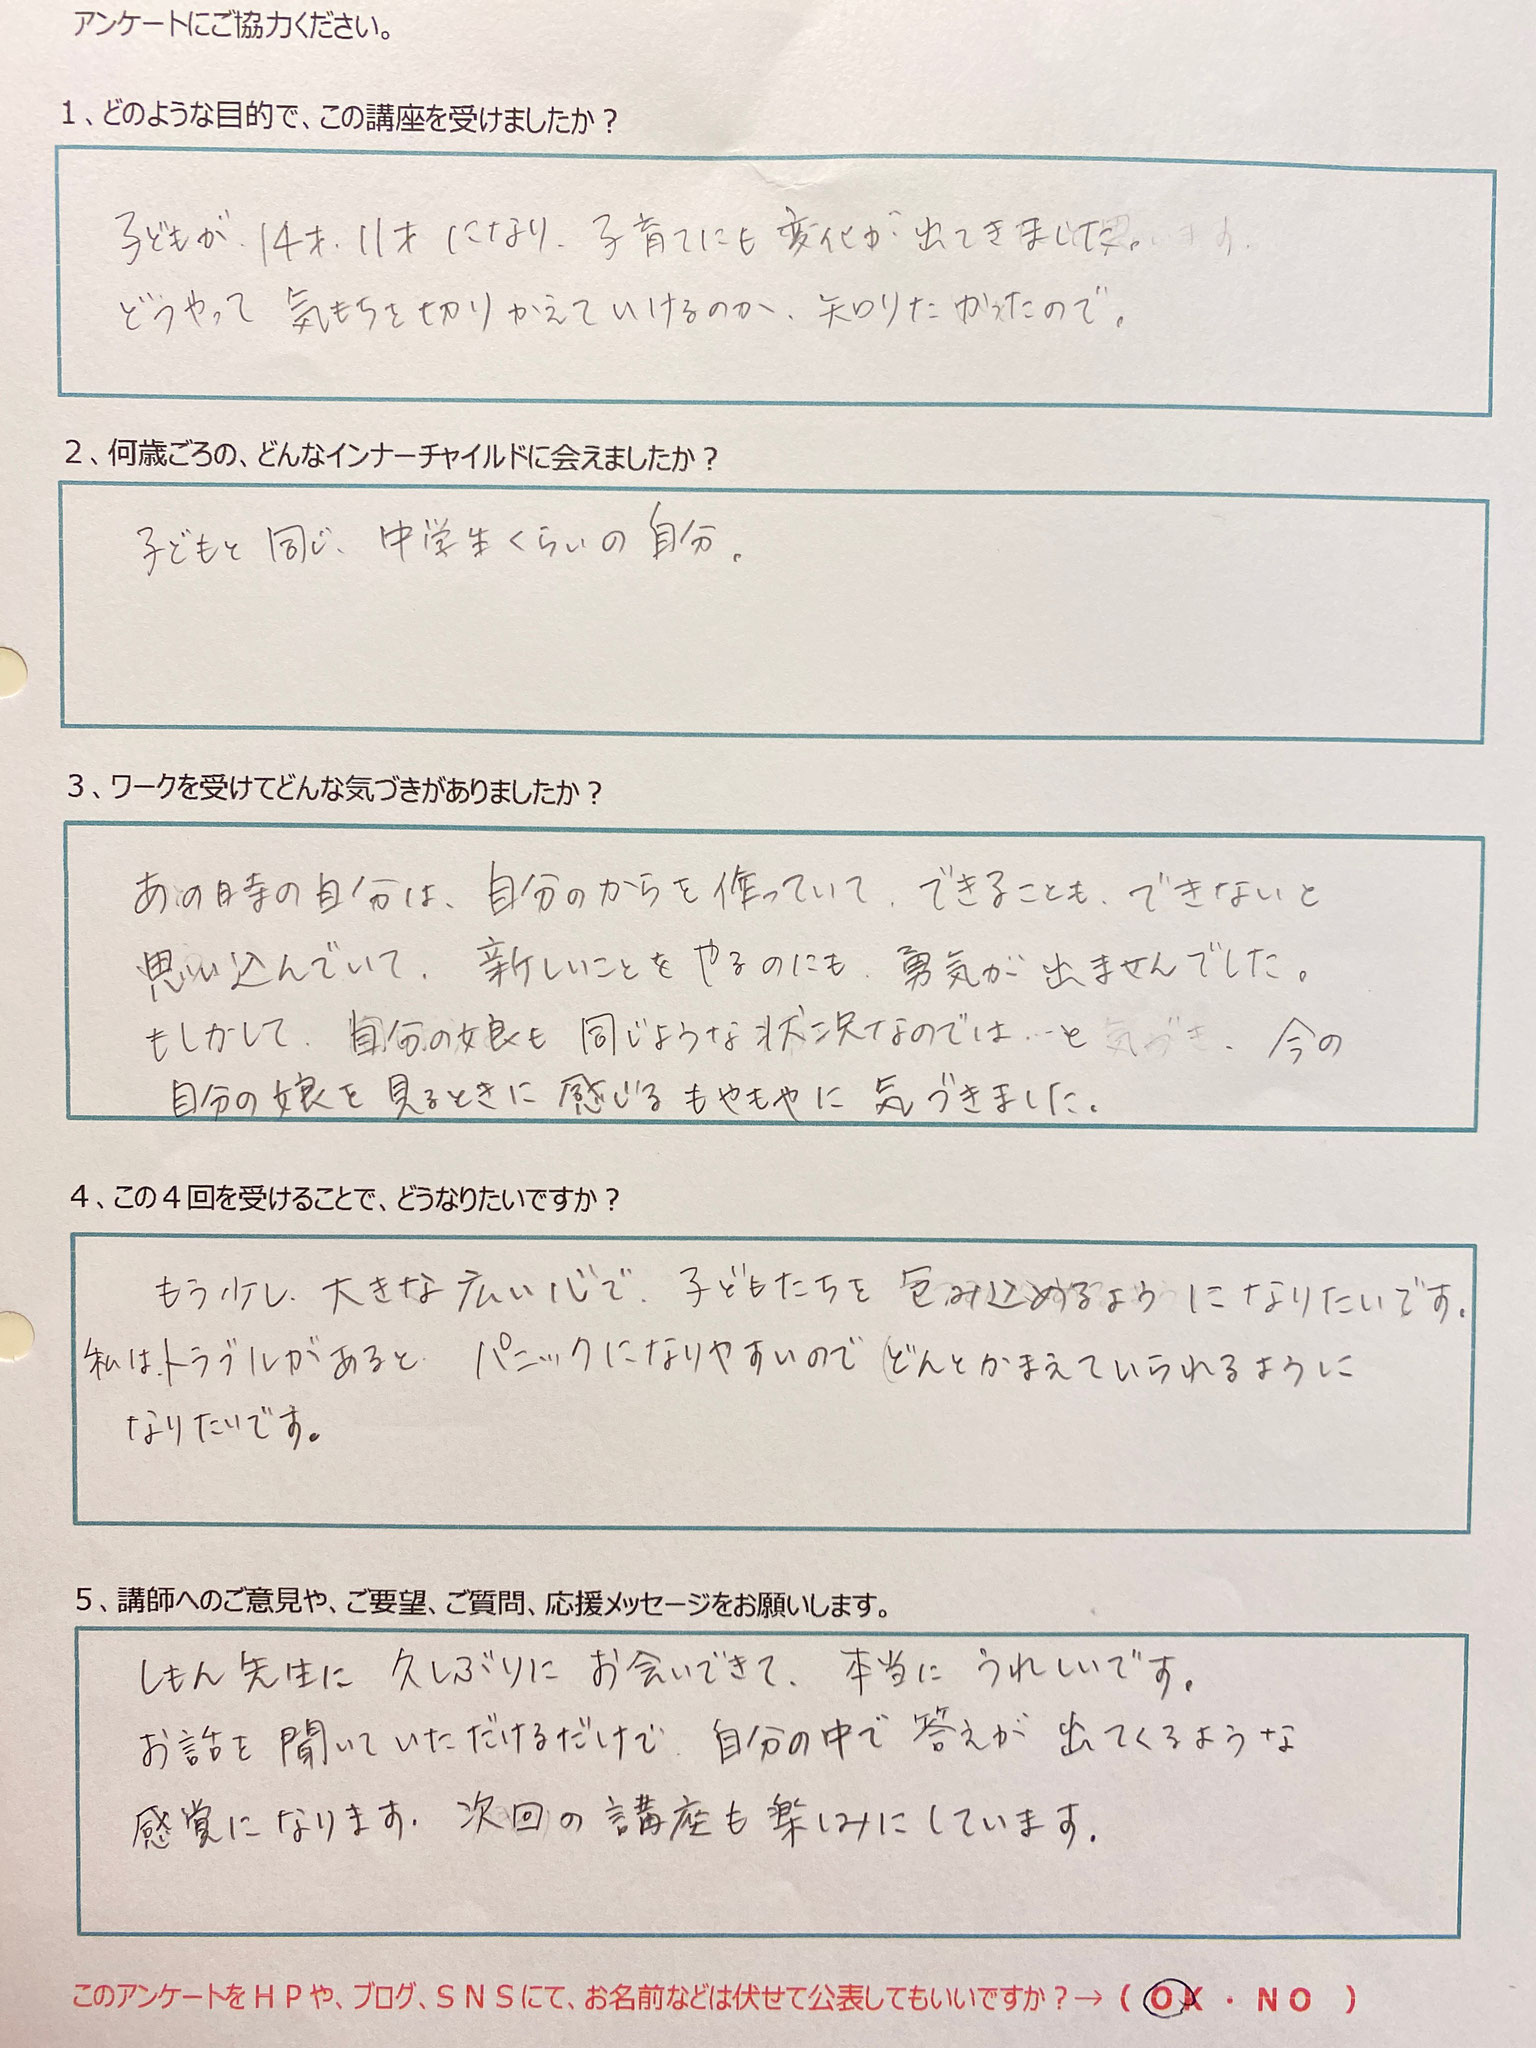 アンケートにご協力ください。
1、どのような目的で、この講座を受けましたか？
子どもが、14才、11才になり、子育てにも変化が出てきました。
どうやって気もちを切りかえていけるのか、知りたかったので。
2、何歳ごろの、どんなインナーチャイルドに会えましたか？
子どもと同じ、中学生くらいの自分。
3、ワークを受けてどんな気づきがありましたか？
あの時の自分は、自分のからを作っていて、できることも、できないと
思い込んでいて、新しいことをやるのにも、勇気が出ませんでした。
もしかして、自分の娘も同じような状況なのでは…と気づき、今の
自分の娘を見るときに感じるもやもやに気づきました。
4、この4回を受けることで、どうなりたいですか？
もう少し、大きな広い心で、子どもたちを包み込めるようになりたいです。
私は、トラブルがあると、パニックになりやすいのでどんとかまえていられるように
なりたいです。
5、講師へのご意見や、ご要望、ご質問、応援メッセージをお願いします。
しもん先生に久しぶりにお会いできて、本当にうれしいです。
お話を聞いていただけるだけで、自分の中で答えが出てくるような
感覚になります。次回の講座も楽しみにしています。
このアンケートをＨＰや、ブログ、ＳＮＳにて、お名前などは伏せて公表してもいいですか？→（ ＯＫ ・ ＮＯ ）